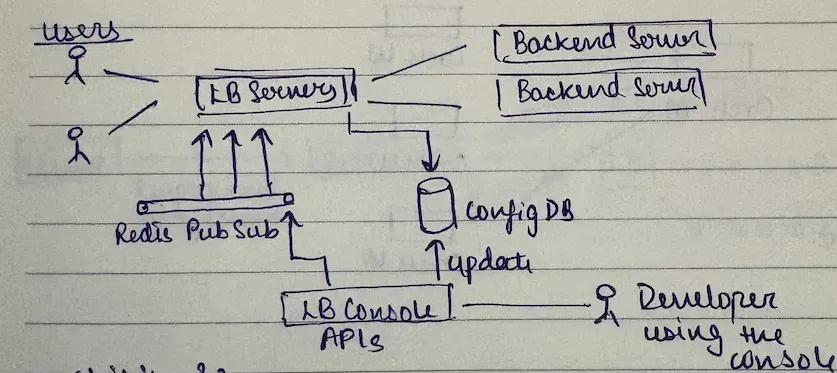 Users
Backend Server
LB Servers
Backend Server
Redis PubSub
Config DB
update
LB Console
APIs
Developer
using the
console